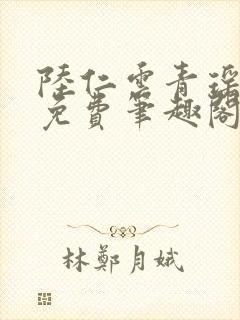 陸仁雲青瑤
免費筆趣閣
林鄭月娥